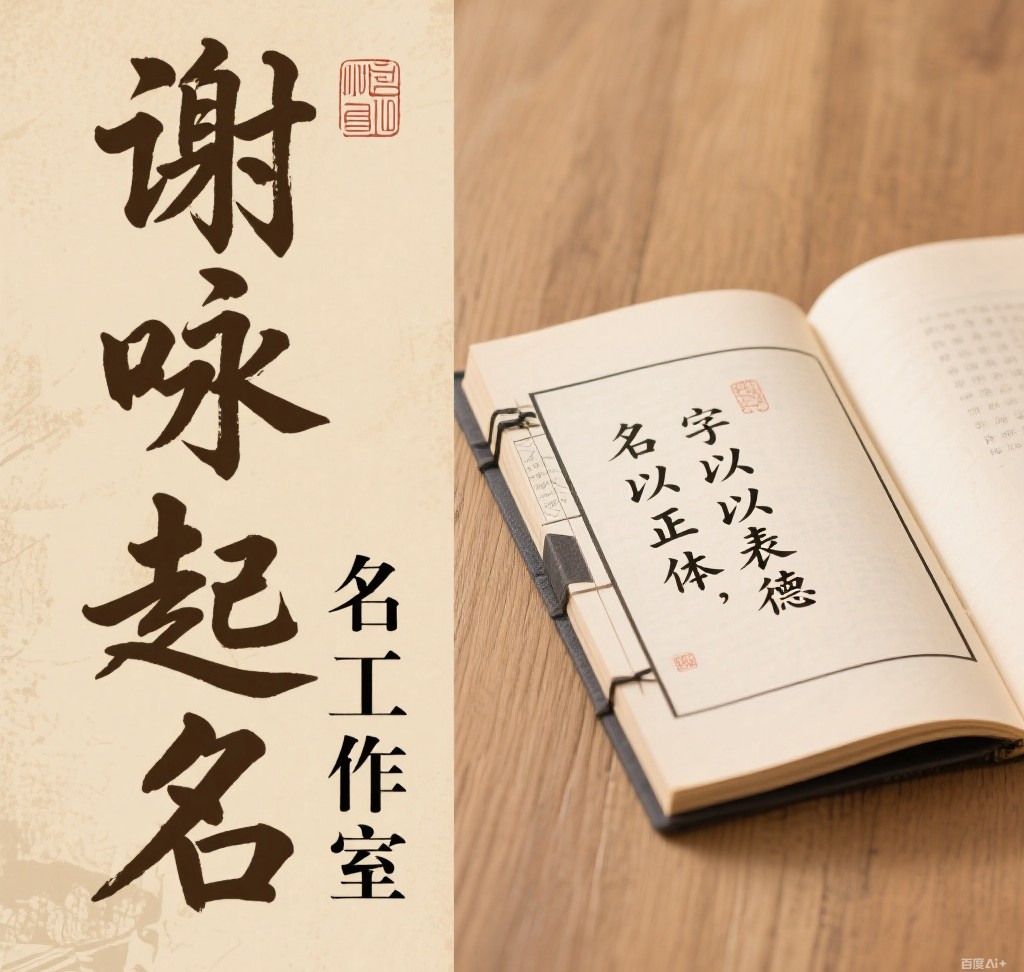 谢咏起名
名工作室
字以以表德
名以正体，
百度Ai+